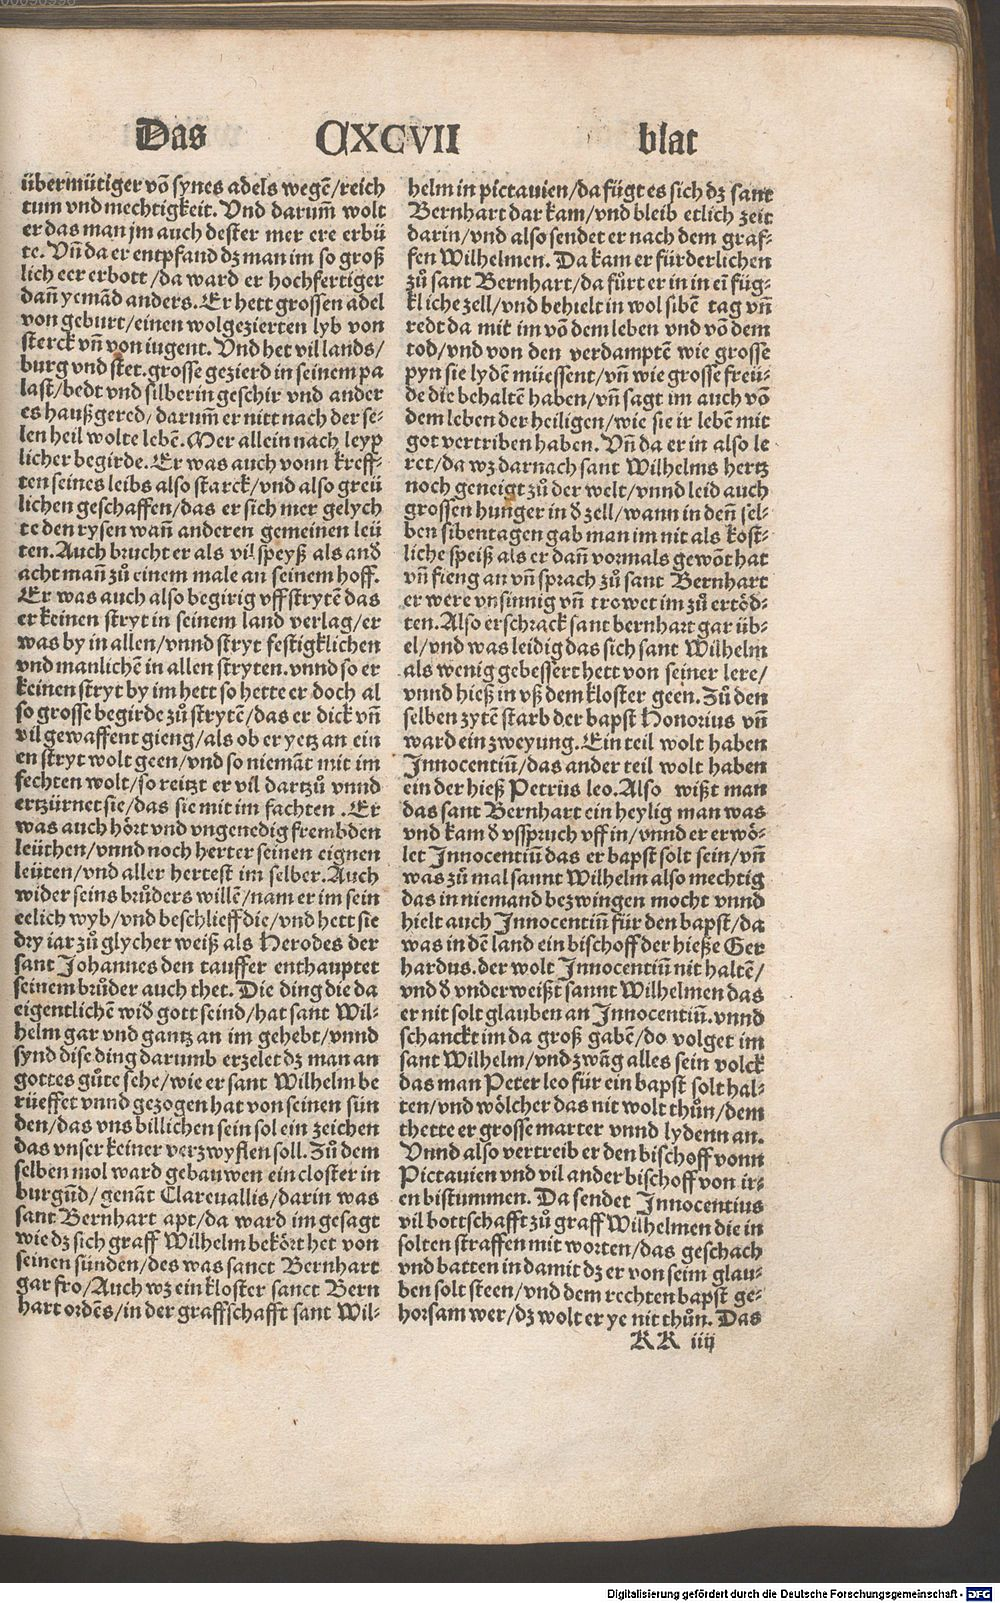 Das CXCVII blat
übermütiger võ synes adels wegẽ/reich
tum vnd mechtigkeit. Vnd darum̃ wolt
er das man jm auch dester mer ere erbü
te. Vñ da er entpfand dz man im so groß
lich eer erbott/da ward er hochfertiger
dañ yemãd anders. Er hett grossen adel
von geburt/einen wolgezierten lyb von
sterck vñ von iugent. Vnd het vil lands/
burg vnd stet. grosse gezierd in seinem pa
last/bedt vnd silberin geschir vnd ander
es haußgered/darum̃ er nitt nach der se-
len heil wolte lebẽ. Mer allein nach leyp
licher begirde. Er was auch vonn kreff-
ten seines leibs also starck/vnd also greü
lichen geschaffen/das er sich mer gelych
te den rysen wañ anderen gemeinen leü
ten. Auch brucht er als vil speyß als and
acht mañ zů einem male an seinem hoff.
Er was auch also begirig vff strytẽ das
er keinen stryt in seinem land verlag/er
was by in allen/vnnd stryt festigklichen
vnd manlichẽ in allen stryten. vnnd so er
keinen stryt by im hett so hette er doch al
so grosse begirde zů strytẽ/das er dick vñ
vil gewaffent gieng/als ob er yetz an ein
en stryt wolt geen/vnd so niemãt mit im
fechten wolt/so reitzt er vil dartzů vnnd
ertzürnet sie/das sie mit im fachten. Er
was auch hört vnd vngenedig frembden
leüthen/vnnd noch herter seinen eignen
leüten/vnd aller hertest im selber. Auch
wider seins brůders willẽ/nam er im sein
eelich wyb/vnd beschlieff die/vnd hett sie
dry iar zů glycher weiß als Herodes der
sant Johannes den tauffer enthauptet
seinem brůder auch thet. Die ding die da
eigentlichẽ wid gott seind/hat sant Wil-
helm gar vnd gantz an im gehebt/vnnd
synd dise ding darumb erzelet dz man an
gottes gůte sehe/wie er sant Wilhelm be
rüeffet vnnd gezogen hat von seinen sün
den/das vns billichen sein sol ein zeichen
das vnser keiner verzwyflen soll. Zů dem
selben mol ward gebauwen ein closter in
burgũd/genãt Clareuallis/darin was
sant Bernhart apt/da ward im gesagt
wie dz sich graff Wilhelm bekört het von
seinen sünden/des was sanct Bernhart
gar fro/Auch wz ein kloster sanct Bern
hart ordẽs/in der graffschafft sant Wil-
helm in pictauien/da fügt es sich dz sant
Bernhart dar kam/vnd bleib etlich zeit
darin/vnd also sendet er nach dem graf-
fen Wilhelmen. Da kam er fürderlichen
zů sant Bernhart/da fůrt er in in eĩ füg-
kliche zell/vnd behielt in wol sibẽ tag vñ
redt da mit im võ dem leben vnd võ dem
tod/vnd von den verdamptẽ wie grosse
pyn sie lydẽ müessent/vñ wie grosse freü-
de die behaltẽ haben/vñ sagt im auch võ
dem leben der heiligen/wie sie ir lebẽ mit
got vertriben haben. Vñ da er in also le
ret/da wz darnach sant Wilhelms hertz
noch geneigt zů der welt/vnnd leid auch
grossen hunger in d zell/wann in deñ sel-
ben siben tagen gab man im nit als köst-
liche speiß als er dañ vormals gewõt hat
vñ fieng an vñ sprach zů sant Bernhart
er were vnsinnig vñ trowet im zů ertöd-
ten. Also erschrack sant bernhart gar üb-
el/vnd was leidig das sich sant Wilhelm
als wenig gebessert hett von seiner lere/
vnnd hieß in vß dem kloster geen. Zů den
selben zytẽ starb der bapst Honorius vñ
ward ein zweyung. Ein teil wolt haben
Innocentiũ/das ander teil wolt haben
ein der hieß Petrus leo. Also wißt man
das sant Bernhart ein heylig man was
vnd kam d vsspruch vff in/vnnd er erwö-
let Innocentiũ das er bapst solt sein/vñ
was zů mal sannt Wilhelm also mechtig
das in niemand bezwingen mocht vnnd
hielt auch Innocentiũ für den bapst/da
was in dẽ land ein bischoff der hieße Ger
hardus. der wolt Innocentiũ nit haltẽ/
vnd d vnderweißt sannt Wilhelmen das
er nit solt glauben an Innocentiũ. vnnd
schanckt im da groß gabẽ/do volget im
sant Wilhelm/vnd zwãg alles sein volck
das man Peter leo für ein bapst solt hal-
ten/vnd wölcher das nit wolt thůn/dem
thette er grosse marter vnnd lydenn an.
Vnnd also vertreib er den bischoff vonn
Pictauien vnd vil ander bischoff von ir-
en bistummen. Da sendet Innocentius
vil bottschafft zů graff Wilhelmen die in
solten straffen mit worten/das geschach
vnd batten in damit dz er von seim glau-
ben solt steen/vnd dem rechten bapst ge-
horsam wer/dz wolt er ye nit thůn. Das
KK iiij
Digitalisierung gefördert durch die Deutsche Forschungsgemeinschaft - DFG